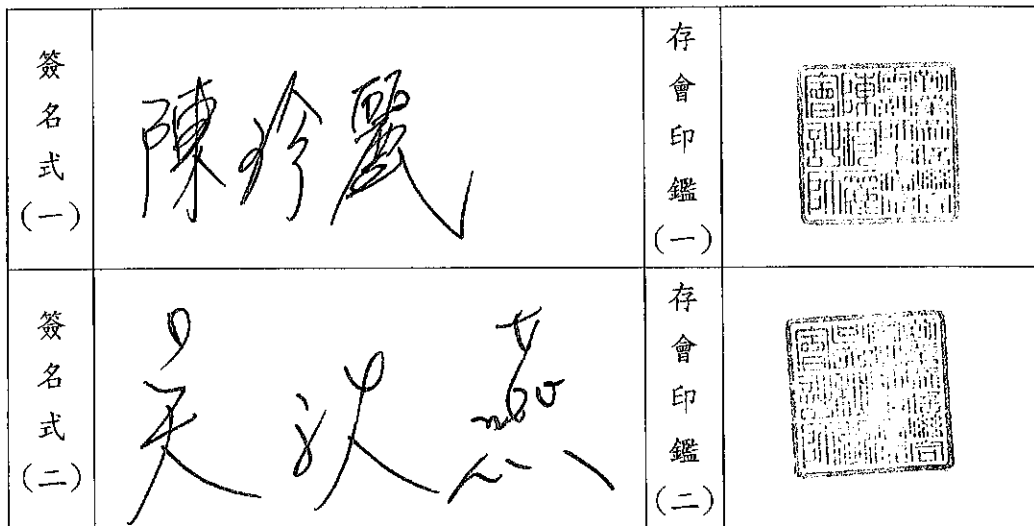 簽名式(一)
陳珍麗
存會印鑑(一)
簽名式(二)
吳秋燕
存會印鑑(二)